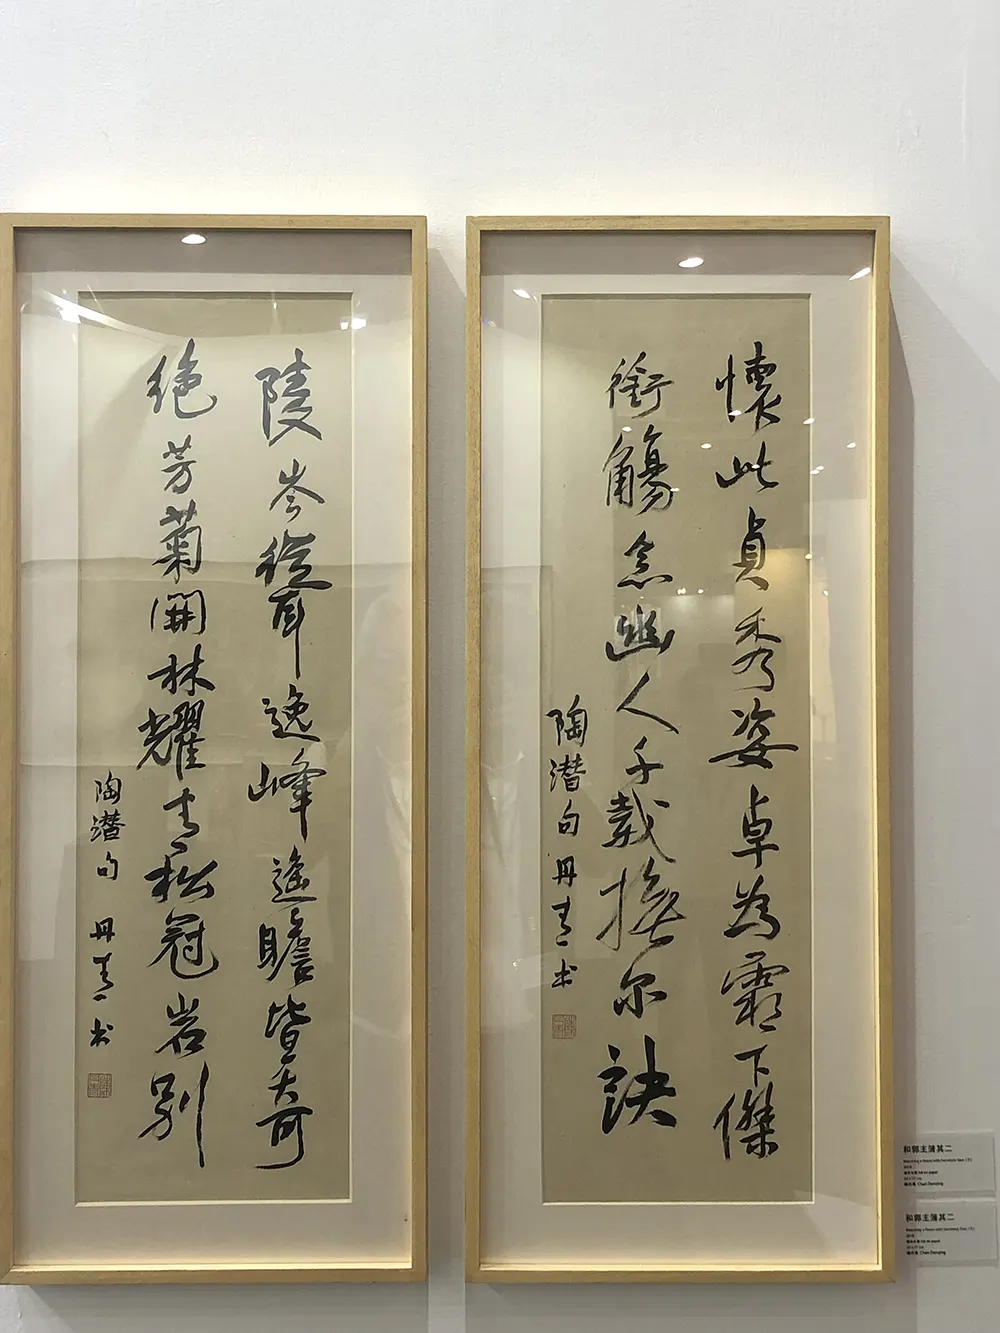 陵岑聳逸峰遙瞻皆奇
絕芳菊開林耀青松冠岩列
陶潛句 丹青书
懷此貞秀姿卓為霜下傑
銜觴念幽人千載撫尔訣
陶潛句 丹青书
和郭主簿其二
Ink on paper
Chen Danqing
和郭主簿其二
Ink on paper
Chen Danqing